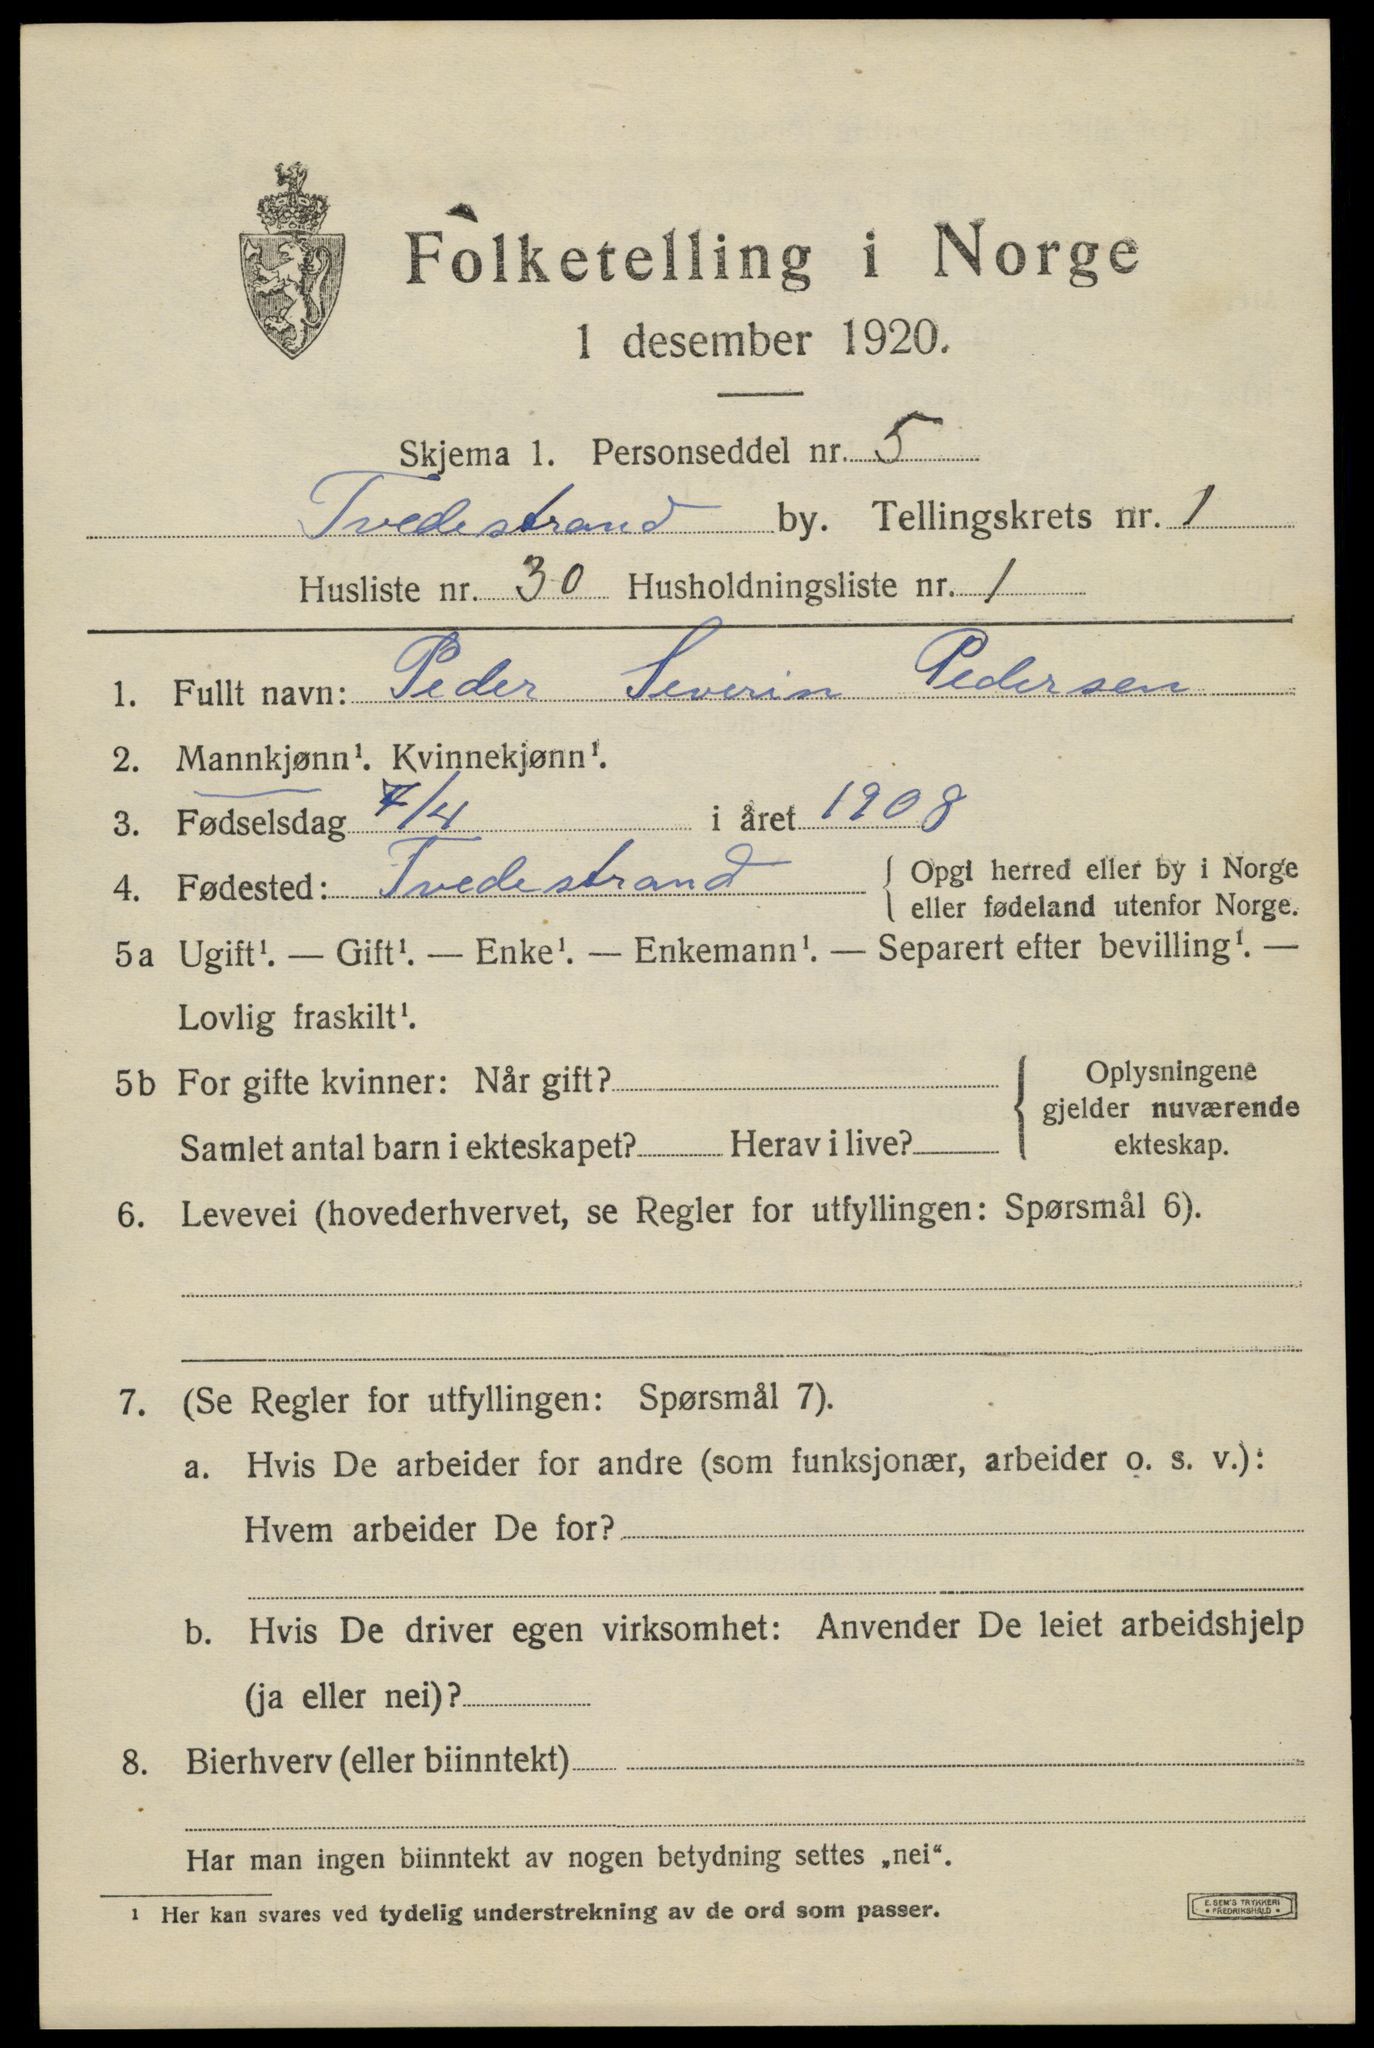 Folketelling i Norge
1 desember 1920.
Skjema 1. Personseddel nr. 5
Tvedestrand by. Tellingskrets nr. 1
Husliste nr. 30 Husholdningsliste nr. 1
1. Fullt navn: Peder Severin Pedersen
2. Mannkjønn¹. Kvinnekjønn¹.
3. Fødselsdag /4 i året 1908
4. Fødested: Tvedestrand { Opgi herred eller by i Norge
eller fødeland utenfor Norge.
5a Ugift¹. — Gift¹. — Enke¹. — Enkemann¹. — Separert efter bevilling¹. —
Lovlig fraskilt¹.
5b For gifte kvinner: Når gift? { Oplysningene
gjelder nuværende
Samlet antal barn i ekteskapet? Herav i live? ekteskap.
6. Levevei (hovederhvervet, se Regler for utfyllingen: Spørsmål 6).
7. (Se Regler for utfyllingen: Spørsmål 7).
a. Hvis De arbeider for andre (som funksjonær, arbeider o. s. v.):
Hvem arbeider De for?
b. Hvis De driver egen virksomhet: Anvender De leiet arbeidshjelp
(ja eller nei)?
8. Bierhverv (eller biinntekt)
Har man ingen biinntekt av nogen betydning settes „nei“.
1 Her kan svares ved tydelig understrekning av de ord som passer.
E. SEM'S TRYKKERI
• FREDRIKSHALD •